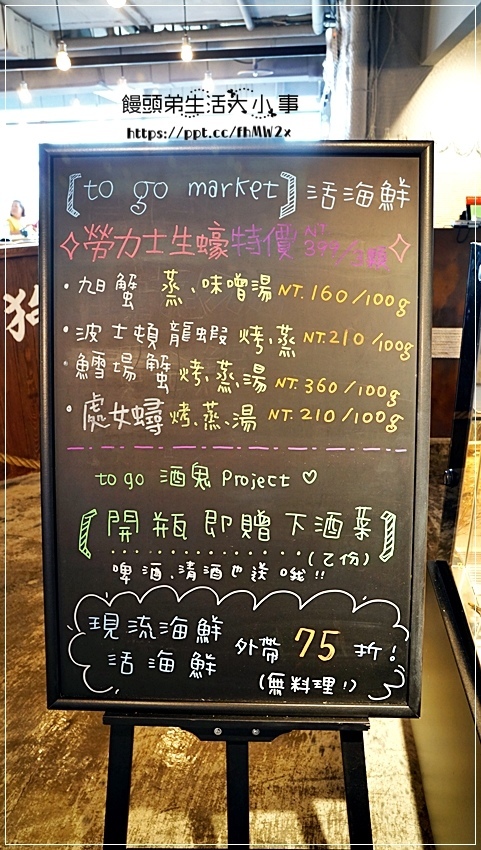 饅頭弟生活大小事
https://ppt.cc/fhMW2x
[to go market] 活海鮮
勞力士生蠔特價 NT
・旭蟹 蒸、味噌湯 NT.160/100g
・波士頓龍蝦 烤、蒸 NT.210/100g
・鱈場蟹 烤、蒸、湯 NT.360/100g
・處女蟳 烤、蒸、湯 NT.210/100g
to go 酒鬼 Project ♡
[開瓶即贈下酒菜]
(乙份)
啤酒、清酒也送哦!!
現流海鮮
活海鮮
外帶 75 折!
(無料理!)
狗